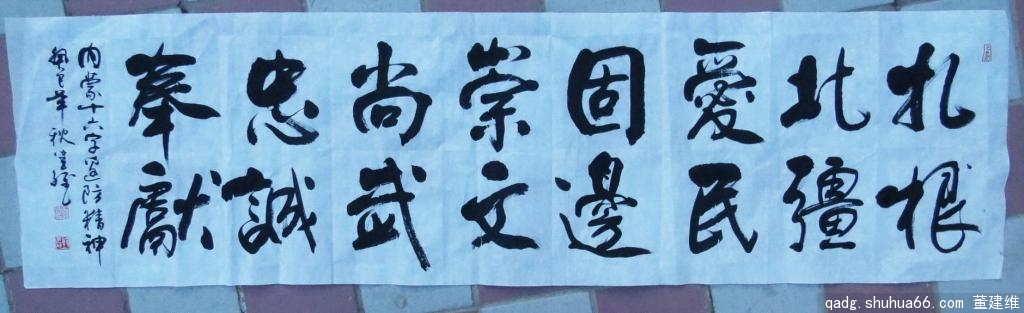 扎根
北疆
愛民
固邊
崇文
尚武
忠誠
奉獻
内蒙十六字边防精神
癸巳年秋建维
qadg.shuhua66.com 董建维